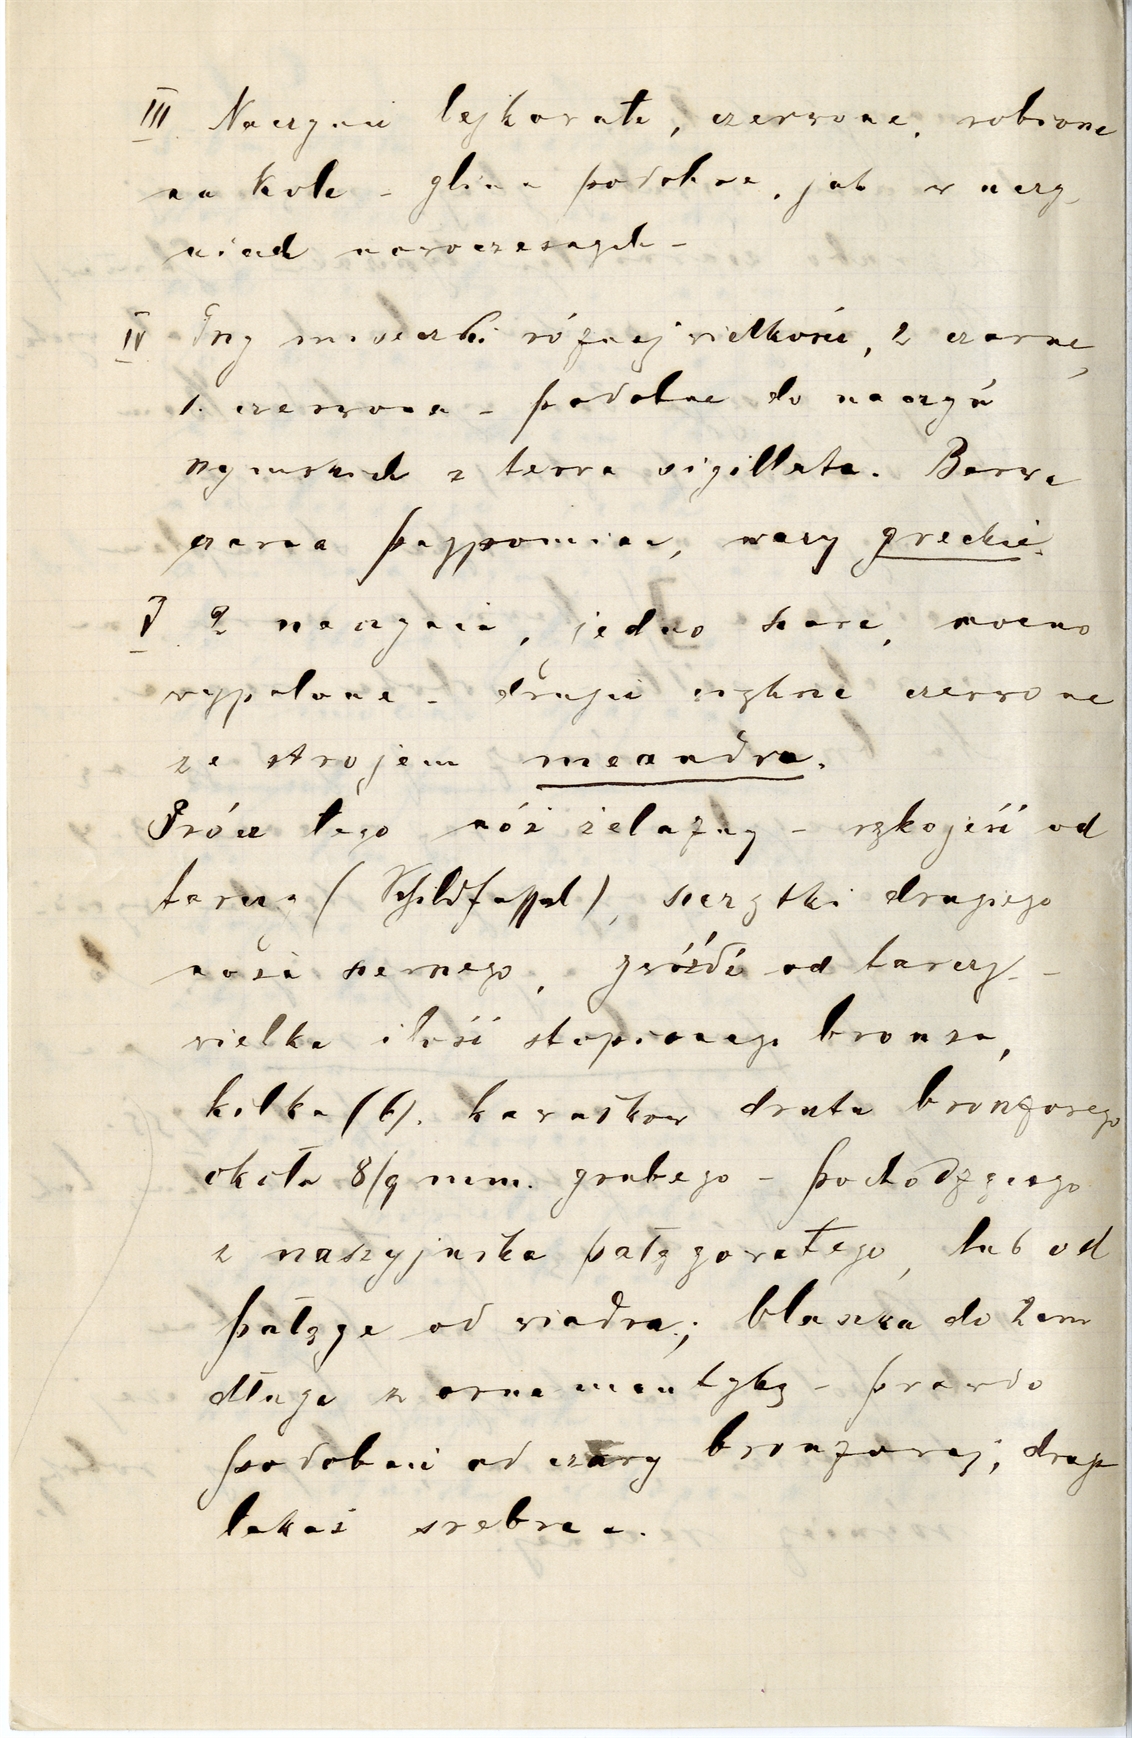 III Naczynie lejkowate, czerwone, robione
na kole - glina podobna, jak w naczy-
niach nowoczesnych -
IV Trzy miseczki różnej wielkości, 2 czarne,
1. czerwona - podobne do naczyń
rzymskich z terra sigillata. Barwa
czarna przypomina, wazy greckie.
V 2 naczynia, jedno szare, mocno
wypalone - drugie czerwone
ze strojem meandra.
Prócz tego nóż żelazny - od
tarczy (Schildfessel), szczątki drugiego
noża, gwóźdź od tarczy -
wielka ilość stopionego bronzu,
kilka (6). kawałków drutu bronzowego
około 8/9 mm. grubego - pochodzącego
z naszyjnika pałągowatego, lub od
pałąga od wiadra; blaszka do 2 cm
długa z ornamentyką - prawdo
podobnie od czary bronzowej; druga
takaż srebrna.